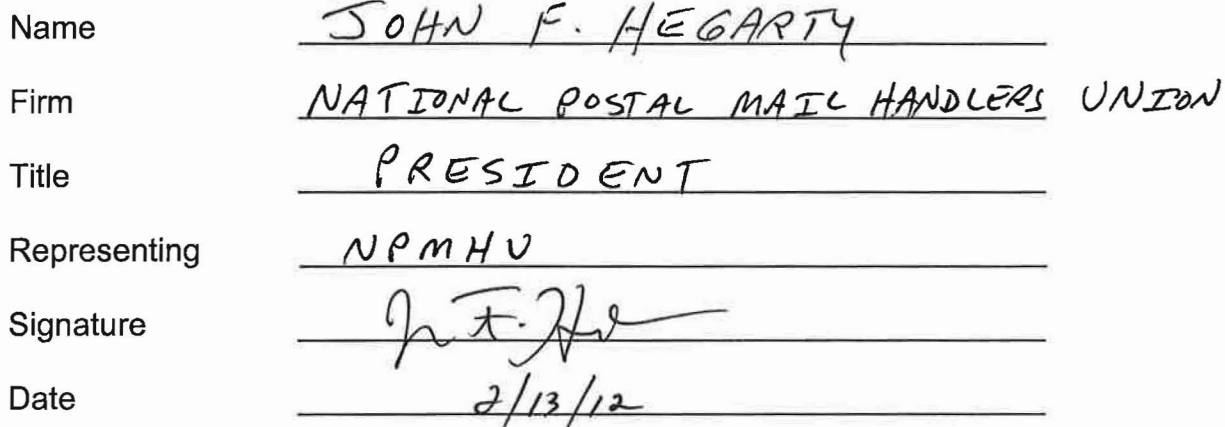 Name JOHN F. HEGARTY
Firm NATIONAL POSTAL MAIL HANDLERS UNION
Title PRESIDENT
Representing NPMHU
Signature
Date 2/13/12